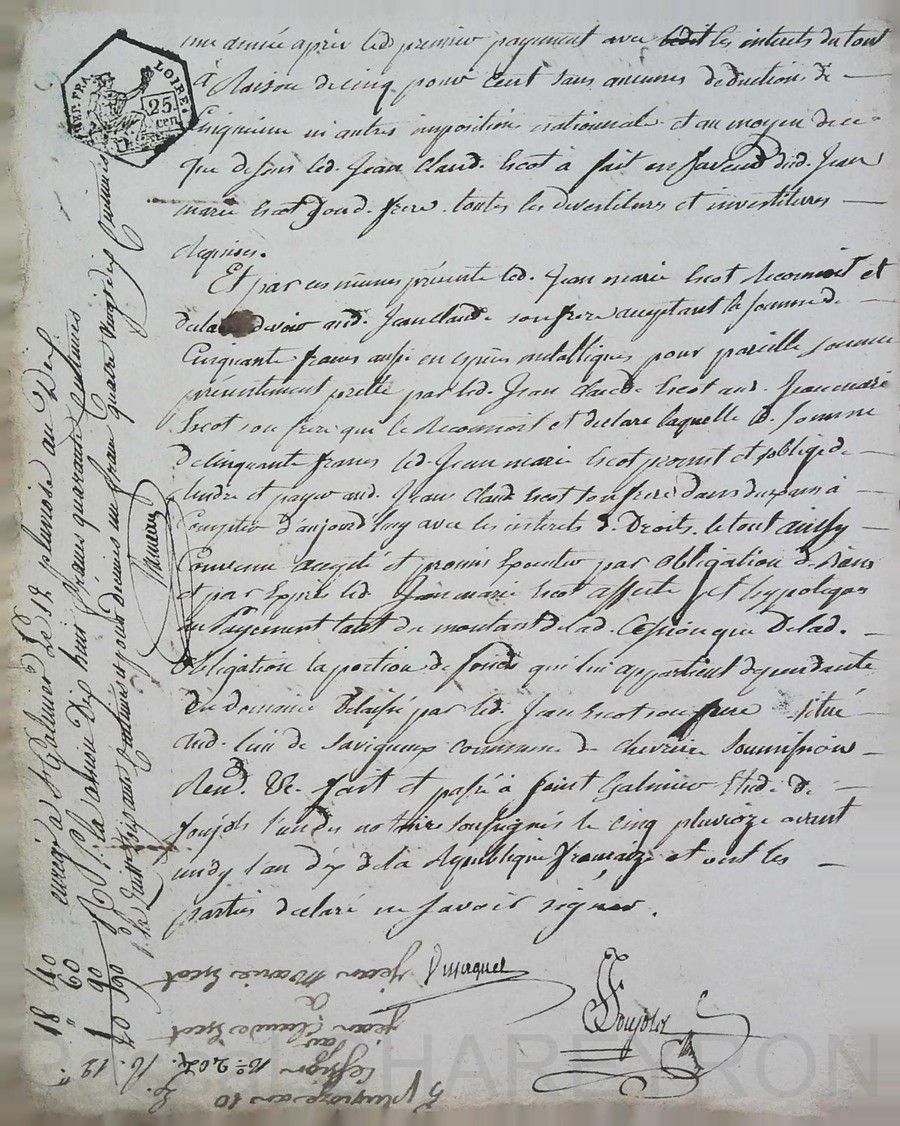 REP. FRA.
LOIRE.
25
cen
une année après led. premier payment avec ledit les interets du tout
à Raison de cinq pour Cent sans aucunes deductions de
ni autres imposition nationnale et au moyen de ce
que dessus led. Jean Claude Escot a fait en faveur dud. Jean
marie Escot sond. frere toutes les devestitures et investitures
Requises.
Et par ces mêmes présente led. Jean marie Escot Reconnoit et
declare devoir aud. Jean Claude son frere acceptant la somme de
Cinquante francs aussi en espèces métalliques pour pareille somme
présentement prette par led. Jean Claude Escot aud. Jean marie
Escot son frere qui le Reconnoit et declare laquelle d. somme
de cinquante francs led. Jean marie Escot promet et soblige de
Rendre et payer aud. Jean Claude Escot son frere dans deux ans à
Compter d'aujourd'huy avec les interets de Droits. le tout ainsy
Convenu accepté et promis Executer par obligation de Biens
et par Exprès led. Jean marie Escot affecte et hypoteque
au Payement tant du montant de lad. Cession que de lad.
obligation la portion de fonds qui lui appartient dependante
du domaine délaissé par led. Jean Escot son frere situé
aud. lieu de Savigneux commune de chevrieres Soumission
Ren.d. &c. fait et passé à Saint Galmier Etude de
Soujols l'un des notaires soussignés le cinq pluvioze avant
midy l'an dix de la Republique francaize et ont les
parties declaré ne savoir signer.
Dumaguet
Soujols
enregé a St Galmier Le 12 pluviose an Dix
la somme Dix huit francs quarante Centimes
et pour décimes un franc quatre vingt dix Centimes
18 40
" 60
1 90
20 90
5 pluvioze an 10
Cession
au
Jean Claude Escot
a
Jean Marie Escot
CHAPERON